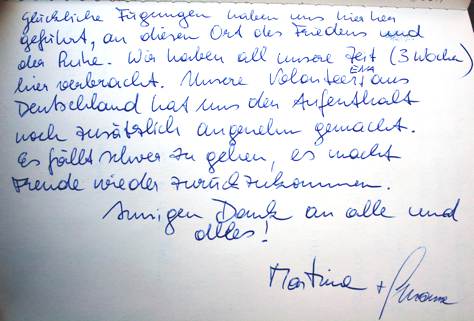 Glückliche Fügungen haben uns hier her
geführt, an diesen Ort des Friedens und
der Ruhe. Wir haben all unsere Zeit (3 Wochen)
hier verbracht. Unsere Volonteerin EVA aus
Deutschland hat uns den Aufenthalt
noch zusätzlich angenehm gemacht.
Es fällt schwer zu gehen, es macht
Freude wieder zurückzukommen.
Innigen Dank an alle und
alles!
Martina +